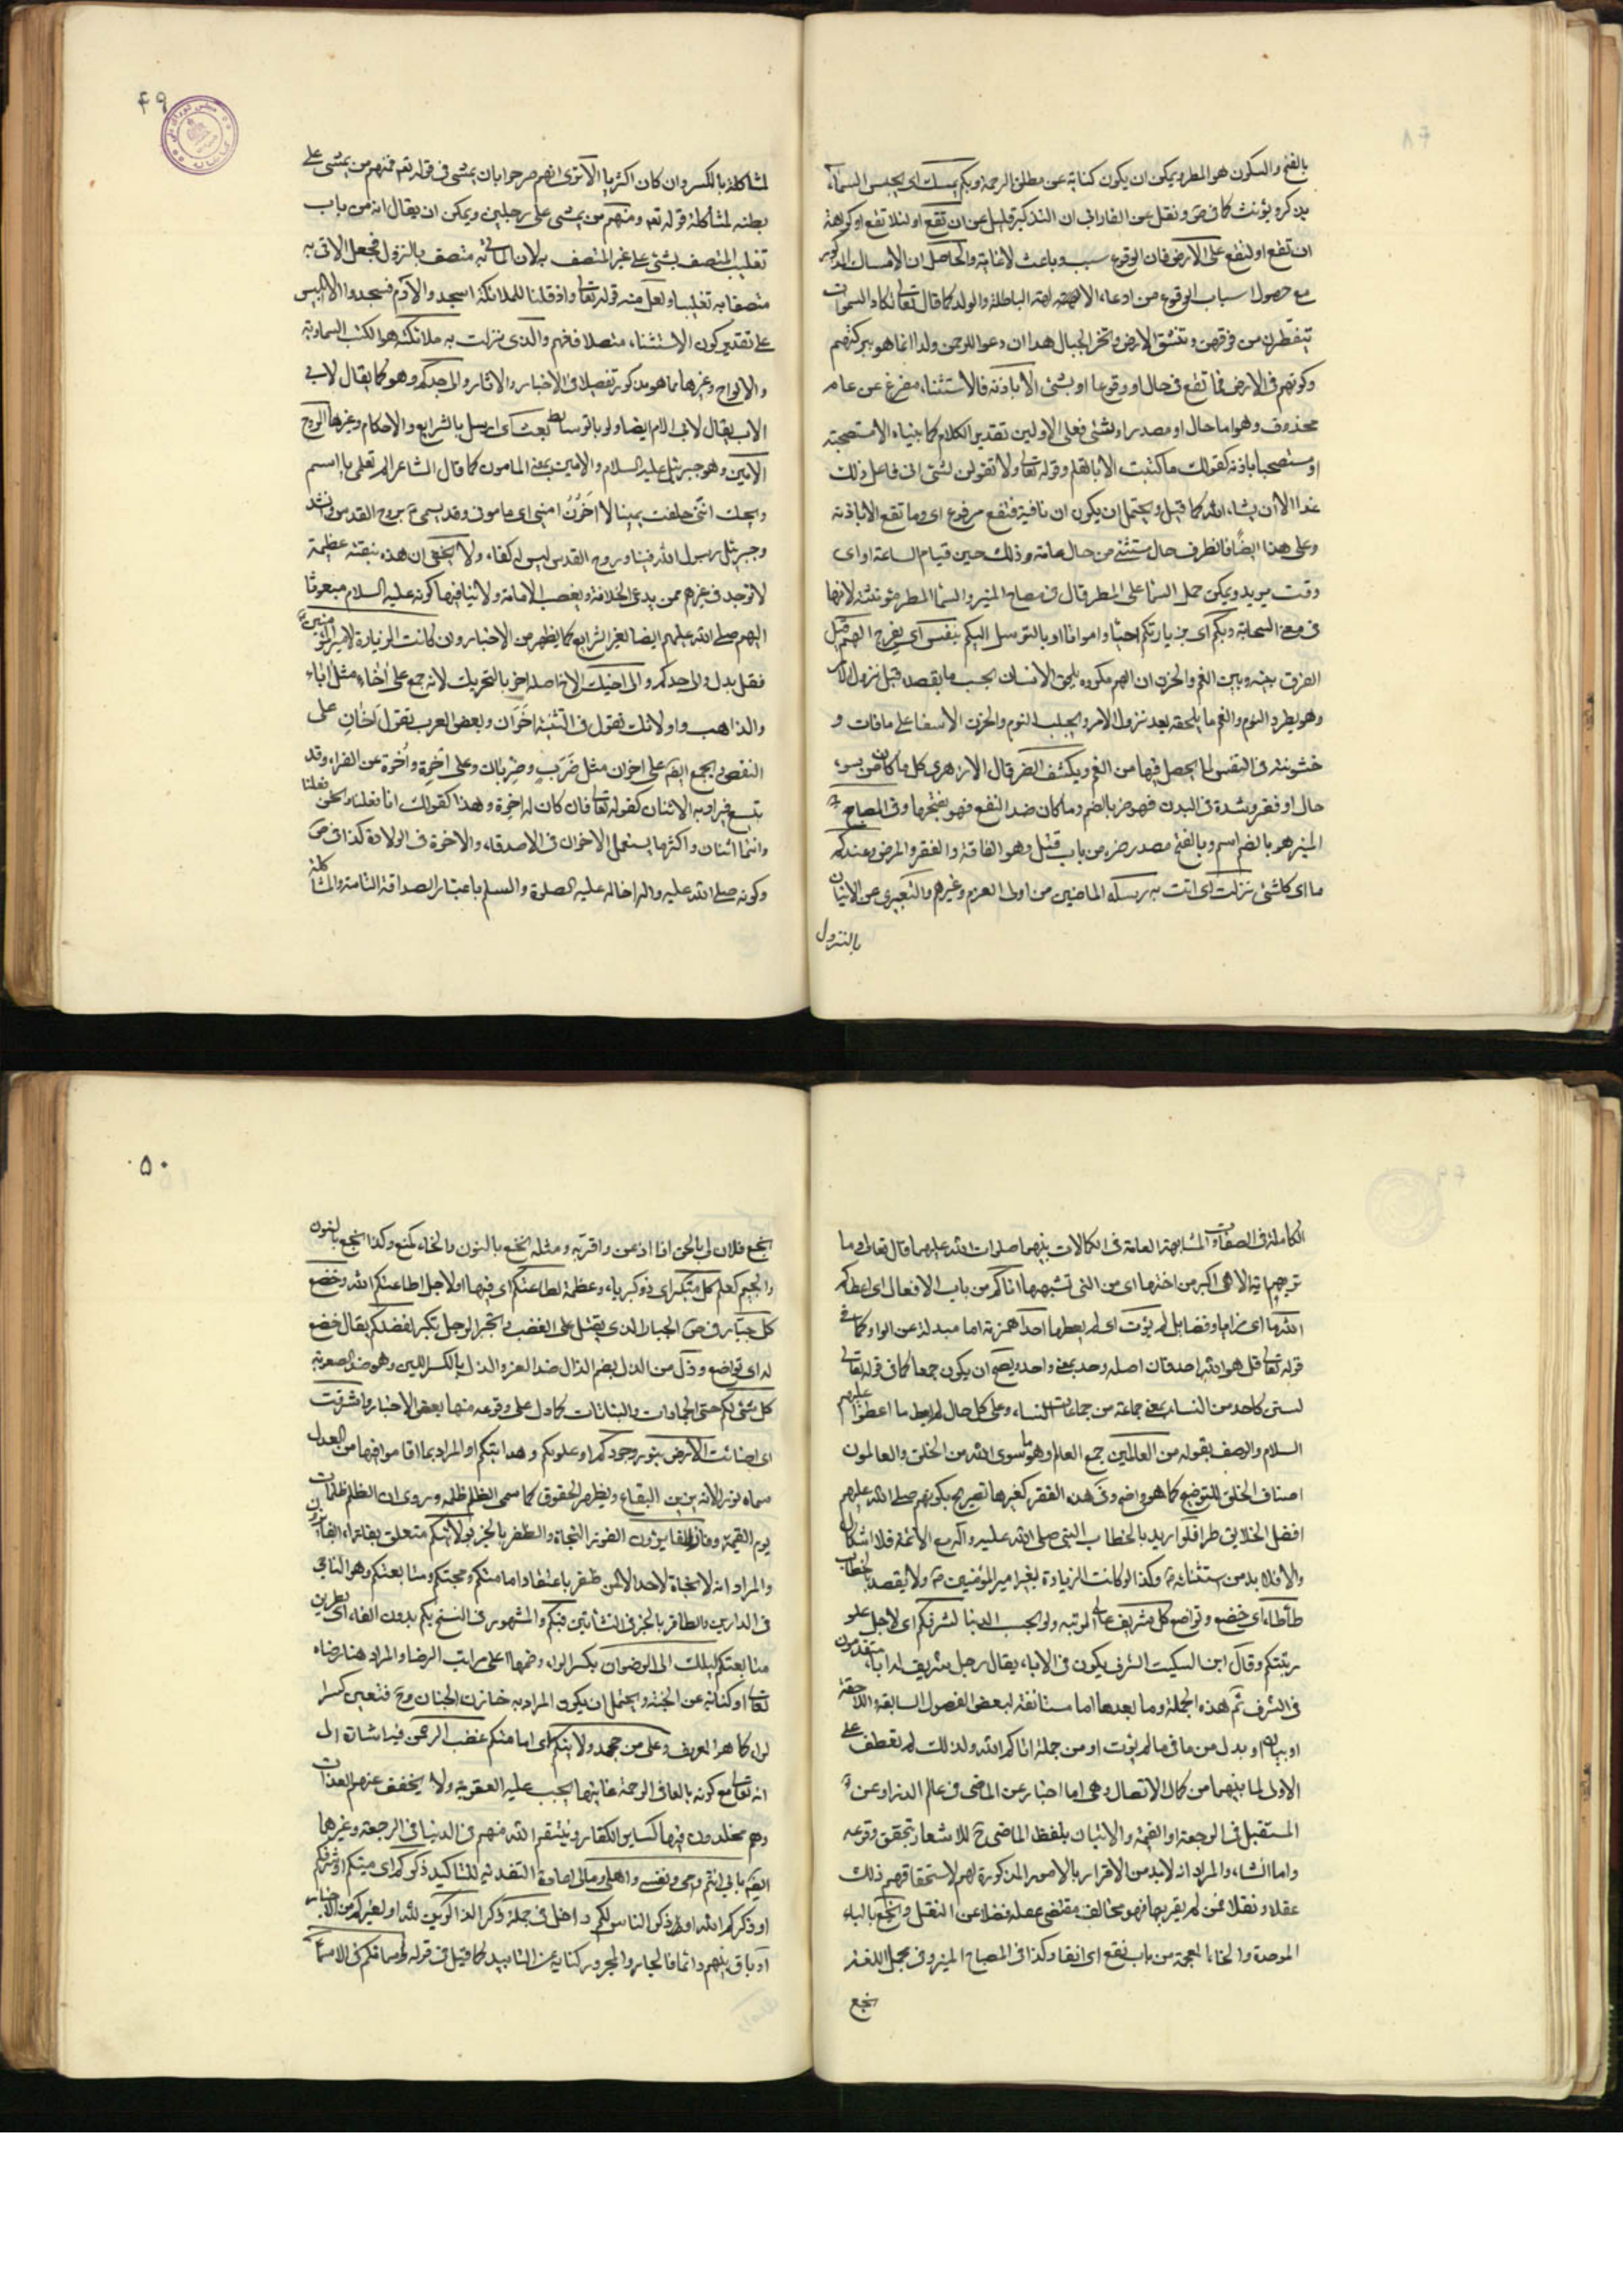 بالفتح والسكون هو المطر ويمكن ان يكون كناية عن مطلق الرحمة وبكم يمسك اى يحبس السماء
يذكر ويؤنث كما فى ص ونقل عن الفارابى ان التذكير قليل عن ان تقع او لئلا تقع او كراهة
ان تقع او لتقع على الارض فان الوقوع سبب وباعث لا غاية والحاصل ان الامساك المذكور
مع حصول اسباب الوقوع من ادعاء الالهة الباطلة والولد كما قال تعالى تكاد السموات
يتفطرن من فوقهن وتنشق الارض وتخر الجبال هدا ان دعوا للرحمن ولدا انما هو ببركتهم
وكونهم فى الارض فما تقع فى حال او وقوعا او بشئ الا باذنه فالاستثناء مفرغ عن عام
محذوف وهو اما حال او مصدر او بشئ فعلى الاولين تقدير الكلام كما بيناه الا مستصحبة
او مستصحبا باذنه كقولك ما كتبت الا بالقلم وقوله تعالى ولا تقولن لشئ انى فاعل ذلك
غدا الا ان يشاء الله كما قيل ويحتمل ان يكون ان نافية فتقع مرفوع اى وما تقع الا باذنه
وعلى هذا ايضا فالظرف حال مستثنى من حال عامة وذلك حين قيام الساعة او اى
وقت يريد ويمكن حمل السماء على المطر قال فى مصباح المنير والسماء المطر مؤنثة لانها
فى معنى السحابة وبكم اى بزيارتكم احياء وامواتا او بالتوسل اليكم ينفس اى يفرج الهم قيل
الفرق بينه وبين الغم والحزن ان الهم مكروه يلحق الانسان بحسب ما يقصد قبل نزول الامر
وهو يطرد النوم والغم ما يلحقه بعد نزول الامر ويجلب النوم والحزن الاسف على ما فات و
خشونة فى النفس لما يحصل فيها من الغم ويكشف الضر قال الازهرى كل ما كان من سوء
حال او فقر وشدة فى البدن فهو ضر بالضم وما كان ضد النفع فهو بفتحها وفى المصباح
المنير هو بالضم اسم وبالفتح مصدر ضره من باب قتل وهو الفاقة والفقر والمرض وعندكم
ما اى كل شئ نزلت اى اتت به رسله الماضين من اولى العزم وغيرهم والتعبير عن الاتيان
بالنزول
۴۹
لمشاكلة بالكسر وان كان اكثريا الا ترى انهم صرحوا بان يمشى فى قوله تعه فمنهم من يمشى على
بطنه لمشاكلة قوله تعه ومنهم من يمشى على رجلين ويمكن ان يقال انه من باب
تغليب المتصف بشئ على غير المتصف به لان الملائكة متصف بالنزول فجعل الاتى به
متصفا به تغليبا ولعل منه قوله تعالى واذ قلنا للملائكة اسجدوا لآدم فسجدوا الا ابليس
على تقدير كون الاستثناء متصلا فافهم والذى نزلت به ملائكته هو الكتب السماوية
والالواح وغيرها مما هو مذكور تفصيلا فى الاخبار والاثار والى جدكم وهو كما يقال لاب
الاب يقال لاب الام ايضا ولو بالوسائط بعث اى ارسل بالشرايع والاحكام وغيرها الروح
الامين وهو جبرئيل عليه السلام والامين بمعنى المامون كما قال الشاعر الم تعلمى يا اسم
ويحك اننى حلفت يمينا لا اخون امينى اى مامونى وقد يسمى ع بروح القدس وانشد
وجبريل رسول الله فينا وروح القدس ليس له كفاء ولا يخفى ان هذه منقبة عظيمة
لا توجد فى غيرهم ممن يدعى الخلافة ويغصب الامامة ولا ينافيها كونه عليه السلام مبعوثا
اليهم صلى الله عليهم ايضا بغير الشرايع كما يظهر من الاخبار وان كانت الزيارة لامير المؤمنين ع
فقل بدل والى جدكم والى اخيك الاخ اصله اخو بالتحريك لانه جمع على آخاء مثل آباء
والذاهب واو لانك تقول فى التثنية اخوان وبعض العرب يقول اخان على
النقص ويجمع ايضه على اخوان مثل خرب وخربان وعلى اخوة واخوة عن الفراء وقد
يتسع فيراد به الاثنان كقوله تعالى فان كان له اخوة وهذا كقولك انا فعلنا ونحن فعلنا
وانتما اثنان واكثر ما يستعمل الاخوان فى الاصدقاء والاخوة فى الولادة كذا فى ص
وكونه صلى الله عليه واله اخا له عليه الصلوة والسلم باعتبار الصداقة التامة والمشاكلة
الكاملة فى الصفات والمشابهة العامة فى الكمالات بينهما صلوات الله عليهما قال تعالى وما
نريهم اية الا هى اكبر من اختها اى من التى تشبهها اتاكم من باب الافعال اى اعطاكم
الله ما اى مزايا وفضايل لم يؤت اى لم يعطها احدا همزته اما مبدلة عن الواو كما فى
قوله تعالى قل هو الله احد فان اصله وحد بمعنى واحد ويصح ان يكون جمعا كما فى قوله تعالى
لستن كاحد من النساء بمعنى جماعة من جماعات النساء وعلى كل حال لم يعط ما اعطوا عليهم
السلام والوصف بقوله من العالمين جمع العالم وهو ما سوى الله من الخلق والعالمون
اصناف الخلق للتوضيح كما هو واضح وفى هذه الفقرة كغيرها تصريح بكونهم صلى الله عليهم
افضل الخلايق طرا فلو اريد بالخطاب النبى صلى الله عليه وآله مع الائمة فلا اشكال
والا فلا بد من استثنائه ص وكذا لو كانت الزيارة لغير امير المؤمنين ع ولا يقصد بالخطاب
طأطأ اى خضع وتواضع كل شريف عالى المرتبة ولو بحسب الدنيا لشرفكم اى لاجل علو
رتبتكم وقال ابن السكيت الشرف يكون فى الاباء يقال رجل شريف له اباء متقدمون
فى الشرف ثم هذه الجملة وما بعدها اما مستانفة لبعض الفصول السابقة واللاحقة
او بيان او بدل من ما فى ما لم يؤت او من جملة اتاكم الله ولذلك لم تعطف على
الاولى لما بينهما من كمال الاتصال وهى اما اخبار عن الماضى فى عالم الذر او عن
المستقبل فى الرجعة او القيمة والاتيان بلفظ الماضى ح للاشعار بتحقق وقوعه
واما انشاء والمراد انه لا بد من الاقرار بالامور المذكورة لهم لاستحقاقهم ذلك
عقلا ونقلا فمن لم يقر بها فهو مخالف مقتضى عقله فضلا عن النقل وبخع بالباء
الموحدة والخاء المعجمة من باب نفع اى انقاد وكذا فى المصباح المنير وفى مجمل اللغة
بخع
۵۰
بخع فلان لى بالحق اذا اذعن واقر به ومثله النخع بالنون والخاء كمنع وكذا النجع بالنون
والجيم كعلم كل متكبر اى ذو كبرياء وعظمة لطاعتكم اى فيها او لاجل اطاعتكم الله وخضع
كل جبار فى ص الجبار الذى يقتل على الغضب وتجبر الرجل تكبر لفضلكم يقال خضع
له اى تواضع وذل من الذل بضم الذال ضد العز والذل بالكسر اللين وهو ضد الصعوبة
كل شئ لكم حتى الجمادات والنباتات كما دل على وقوعه منها بعض الاخبار واشرقت
اى اضائت الارض بنور وجودكم او علومكم وهدايتكم او المراد بما اقاموا فيها من العدل
سماه نورا لانه يزين البقاع ويظهر الحقوق كما سمى الظلم ظلمة وروى ان الظلم ظلمات
يوم القيمة وفاز الفايزون الفوز النجاة والظفر بالخير بولايتكم متعلق بفاز او الفايزون
والمراد انه لا نجاة لاحد الا لمن ظفر باعتقاد امامتكم ومحبتكم ومتابعتكم وهو الناجى
فى الدارين والظافر بالخير فى النشأتين فبكم والمشهور فى النسخ بكم بدون الفاء اى بطريق
متابعتكم يسلك الى الرضوان بكسر الراء وضمها اعلى مراتب الرضا والمراد هنا رضاه
تعالى او كناية عن الجنة ويحتمل ان يكون المراد به خازن الجنان وح فتعين كسر
الراء كما هو المعروف وعلى من جحد ولايتكم اى امامتكم غضب الرحمن فيه اشارة الى
انه تعالى مع كونه بالغا فى الرحمة غايتها يجب عليه العقوبة ولا يخفف عنهم العذاب
وهم مخلدون فيها كساير الكفار وينتقم الله منهم فى الدنيا فى الرجعة وغيرها
ايضه بابى انتم وامى ونفسى واهلى ومالى اعادة التفدية للتاكيد ذكركم اى ميتكم او شرفكم
او ذكركم الله او ذكر الناس لكم داخل فى جملة ذكر الذاكرين لله او لغيركم من الاخيار
او باق بينهم دائما فالجار والمجرور كناية عن التابيد كما قيل فى قوله واسماؤكم فى الاسماء